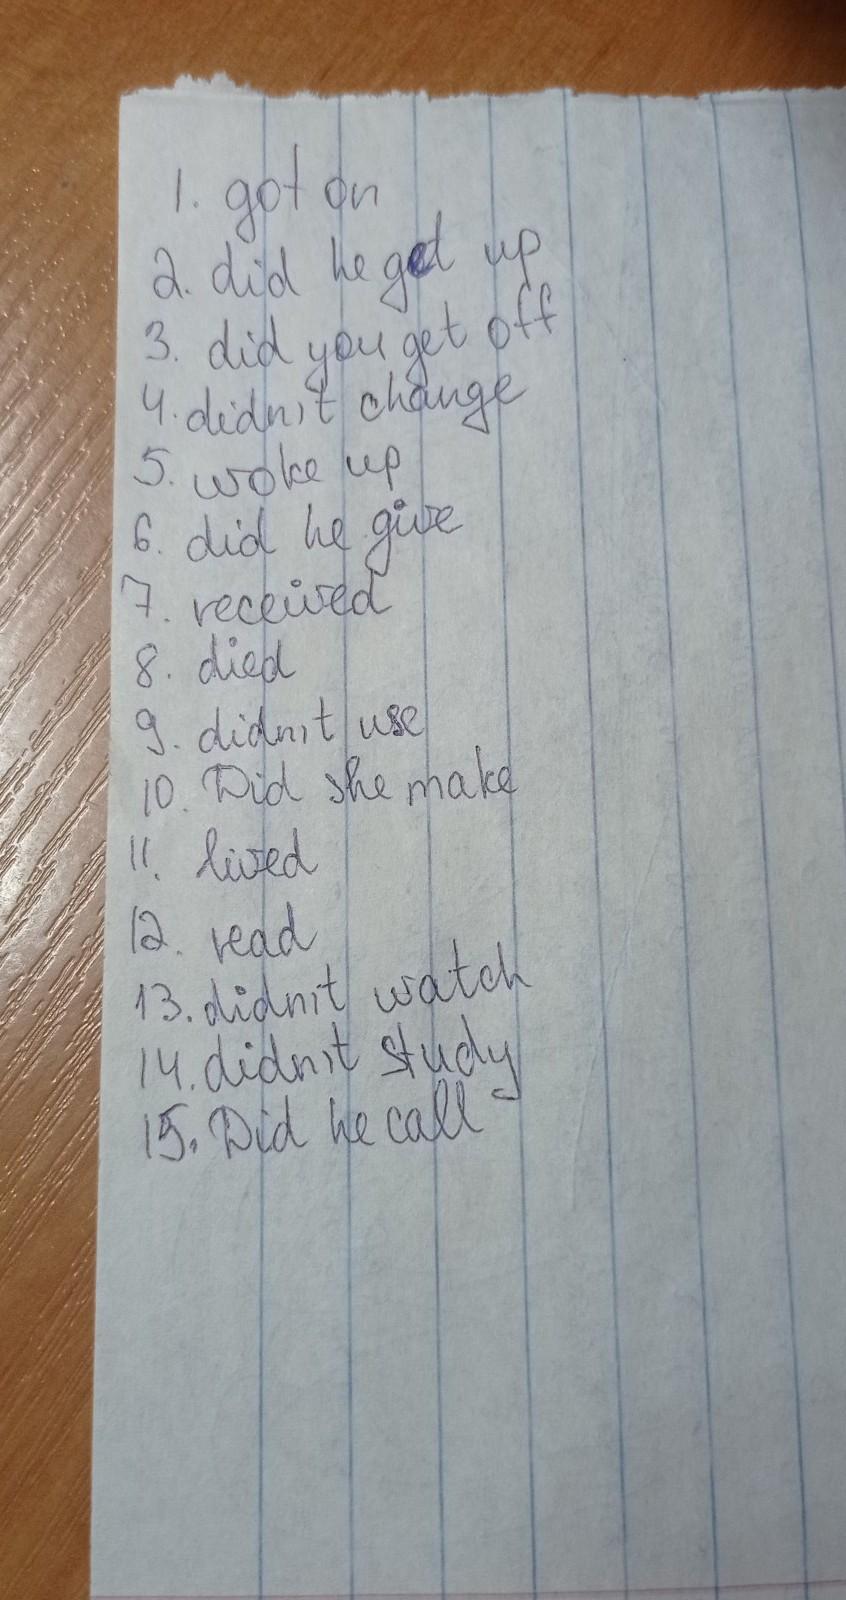 1. got on
2. did he get up
3. did you get off
4. didn't change
5. woke up
6. did he give
7. received
8. died
9. didn't use
10. Did she make
11. lived
12. read
13. didn't watch
14. didn't study
15. Did he call